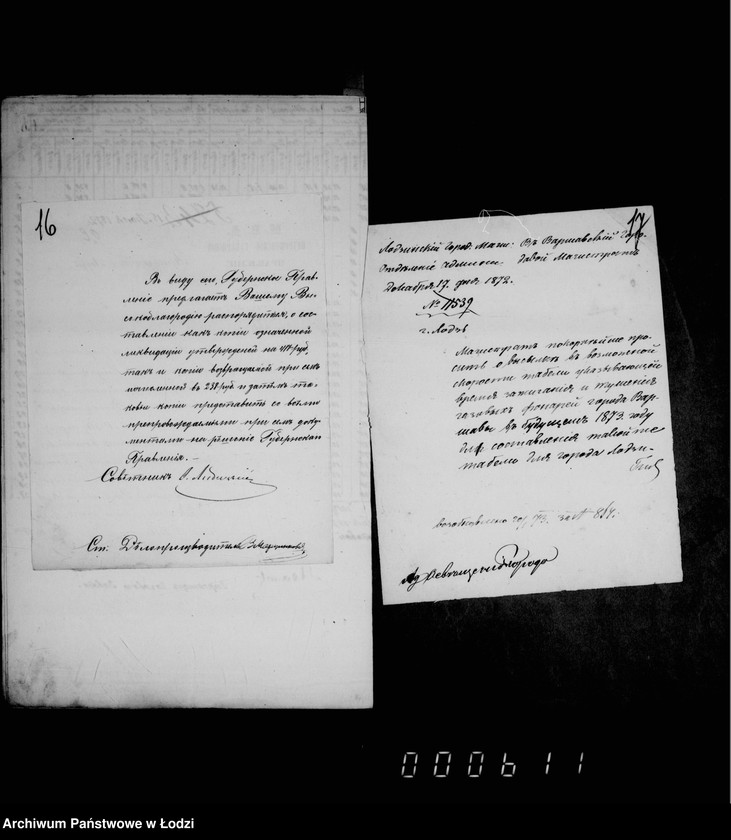 16
Въ виду сего, Губернское Прав-
леніе предлагаетъ Вашему Выс-
скоблагородію распорядиться, о со-
ставленіи какъ копіи означенной
ликвидаціи утвержденной на руб.
такъ и копіи возвращаемой при семъ
исчисленной въ 238 руб. и затѣмъ та-
ковыя копіи представить со всѣми
препровождаемыми при семъ доку-
ментами на рѣшеніе Губернскаго
Правленія.—
Совѣтникъ
Ст. Дѣлопроизводитель
17
Лодзинскій Город. Маги: Въ Варшавскій Горо-
Отдѣленіе Админ. довой Магистратъ
Декабря 17 дня 1872.
№ 11539
г. Лодзь
Магистратъ покорнѣйше про-
ситъ о высылкѣ въ возможной
скорости табели указывающей
время зажиганія и тушенія
газовыхъ фонарей города Вар-
шавы въ будущемъ 1873 году
для составленія таковой же
табели для города Лодзи.
Объ освѣщеніи города
000611
Archiwum Państwowe w Łodzi